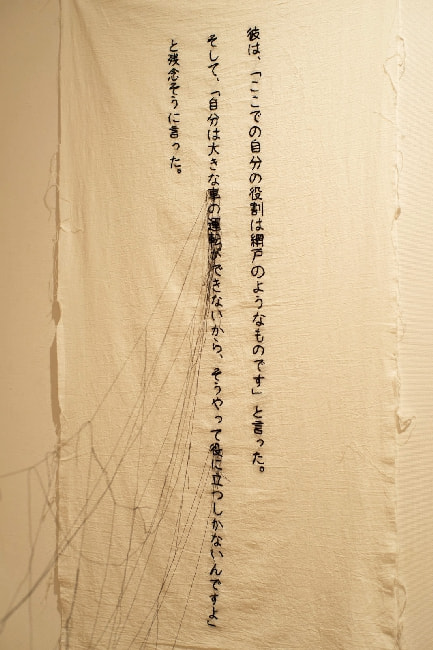 彼は、「ここでの自分の役割は網戸のようなものです」と言った。
そして、「自分は大きな車の運転ができないから、そうやって役に立つしかないんですよ」
と残念そうに言った。